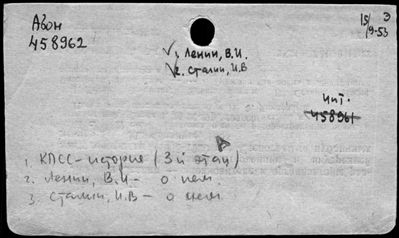 Авон
458962
15/Э
19-53
1. Ленин, В.И.
2. Сталин, И.В
Чит.
458961
1. КПСС - история (3й этап)
2. Ленин, В.И - о нем.
3. Сталин, И.В - о нем.